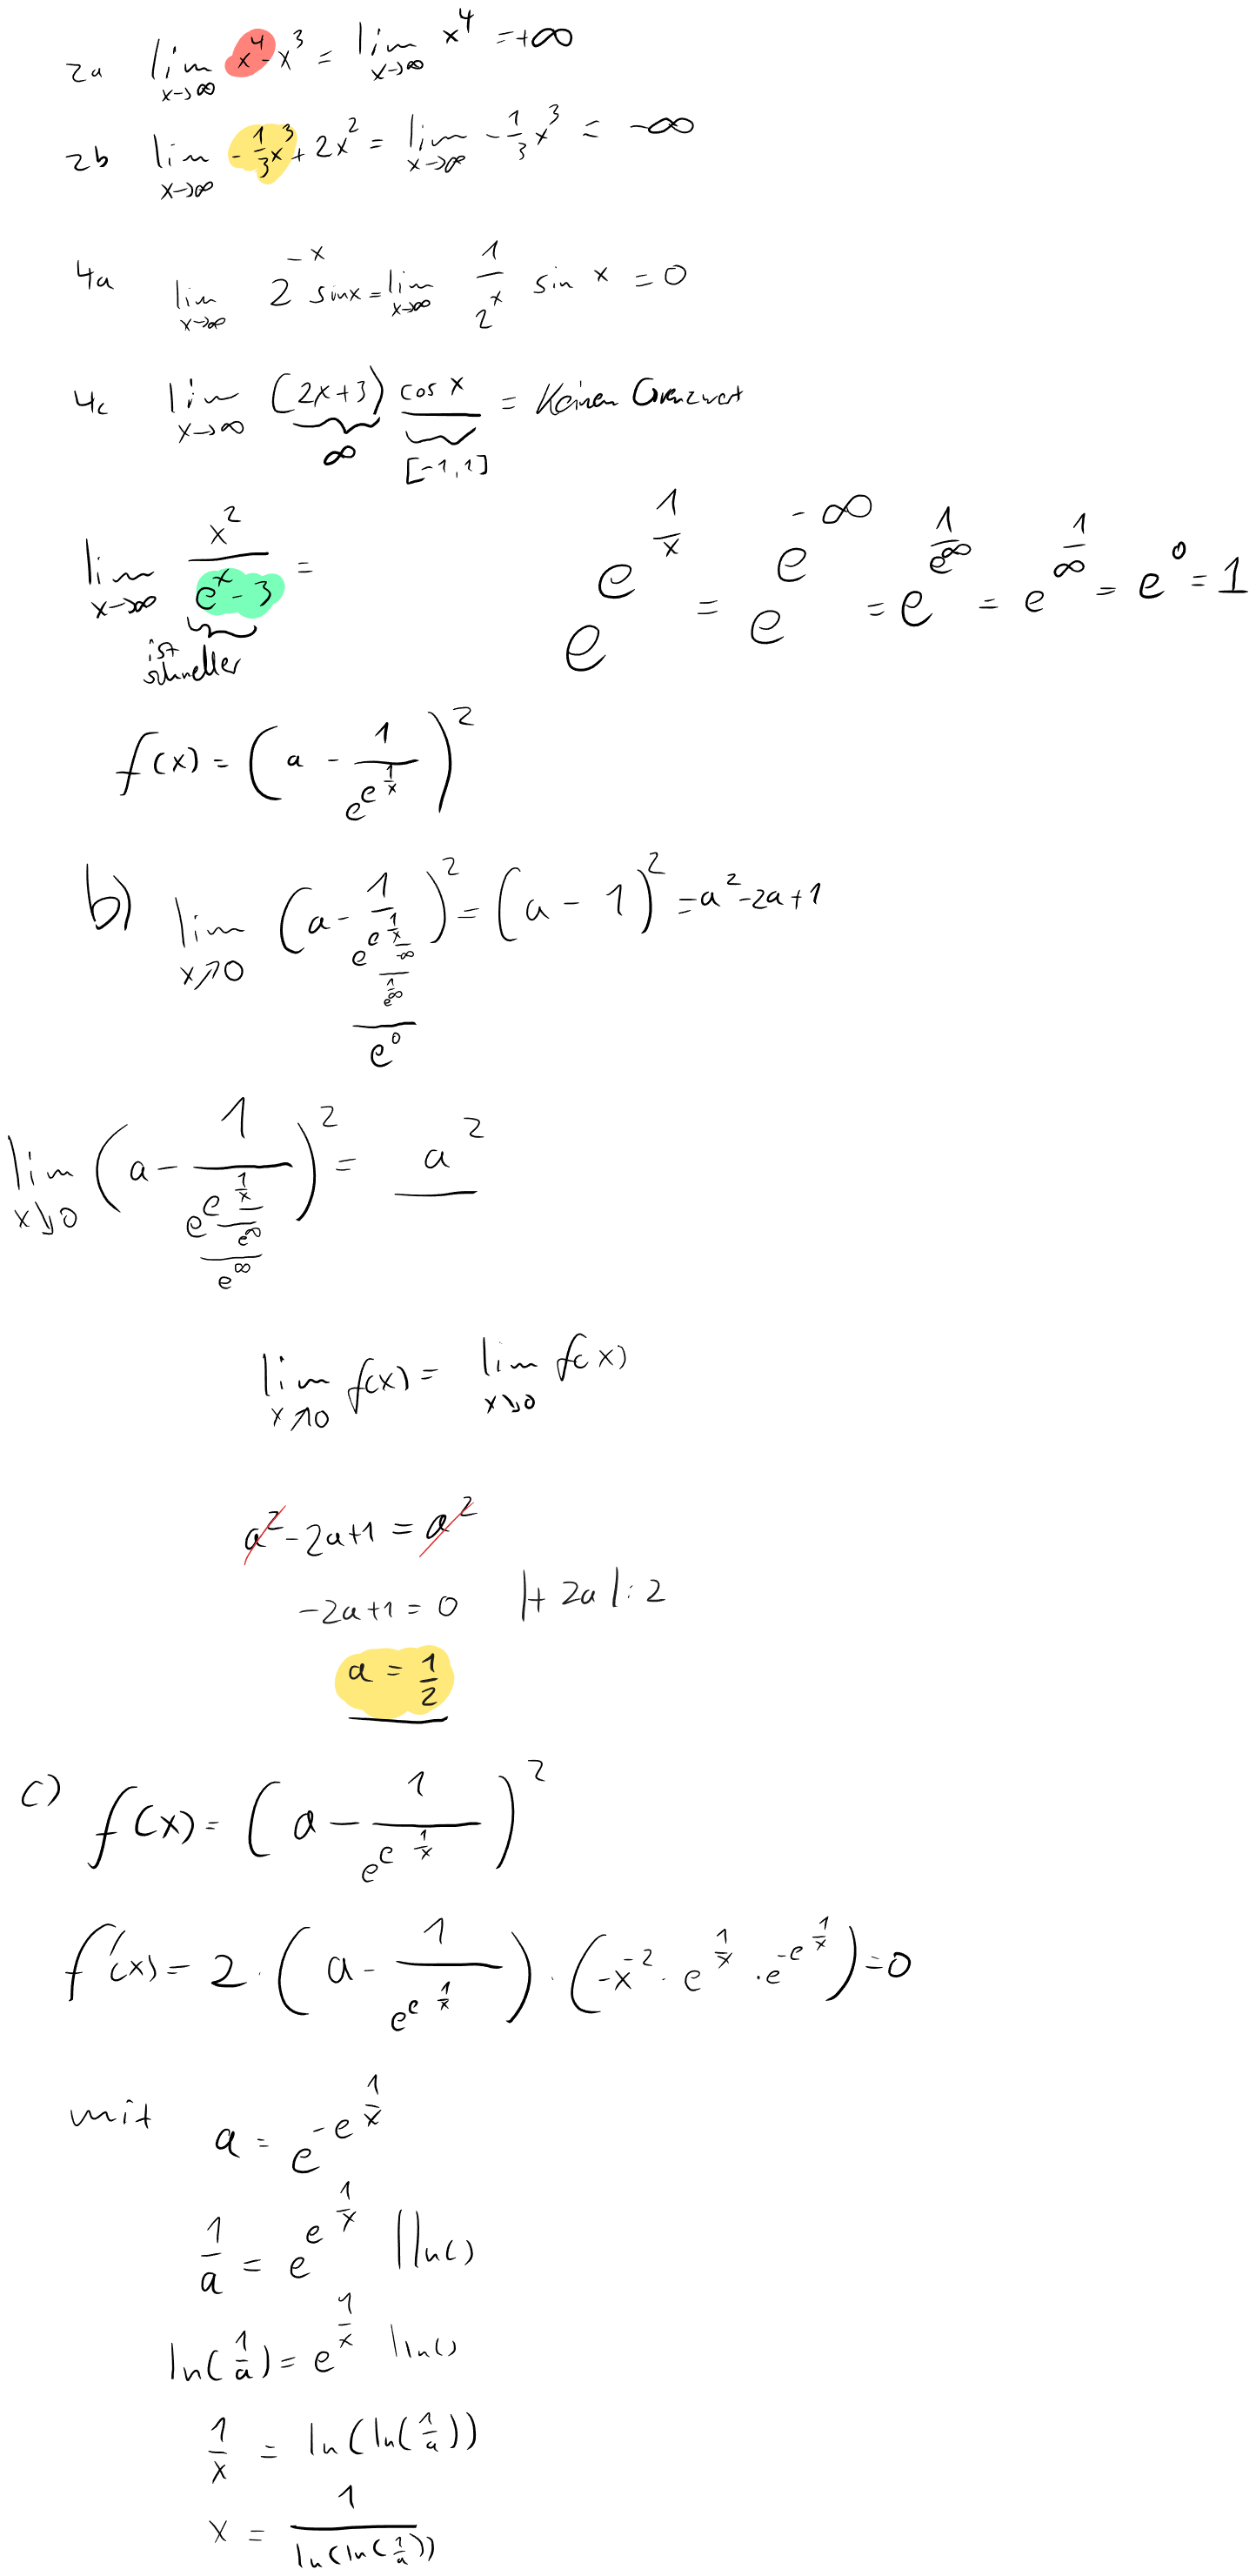 2a lim x→∞ x⁴ - x³ = lim x→∞ x⁴ = +∞
2b lim x→∞ -1/3 x³ + 2x² = lim x→∞ -1/3 x³ = -∞
4a lim x→∞ 2^(-x) sin x = lim x→∞ 1/2^x sin x = 0
4c lim x→∞ (2x+3) cos x = Keinen Grenzwert
∞ [-1,1]
lim x→∞ x²/(e^x - 3) =
ist schneller
e^(e^(1/x)) = e^(e^(-∞)) = e^(1/e^∞) = e^(1/∞) = e^0 = 1
f(x) = (a - 1/e^(e^(1/x)))²
b) lim x↗0 (a - 1/e^(e^(1/x)))² = (a - 1)² = a² - 2a + 1
-∞
1/e^∞
e^0
lim x↘0 (a - 1/e^(e^(1/x)))² = a²
e^∞
e^∞
lim x↗0 f(x) = lim x↘0 f(x)
a² - 2a + 1 = a²
-2a + 1 = 0 |+ 2a |: 2
a = 1/2
c) f(x) = (a - 1/e^(e^(1/x)))²
f'(x) = 2 · (a - 1/e^(e^(1/x))) · (-x^(-2) · e^(1/x) · e^(-e^(1/x))) = 0
mit a = e^(-e^(1/x))
1/a = e^(e^(1/x)) ||ln()
ln(1/a) = e^(1/x) |ln()
1/x = ln(ln(1/a))
x = 1/ln(ln(1/a))